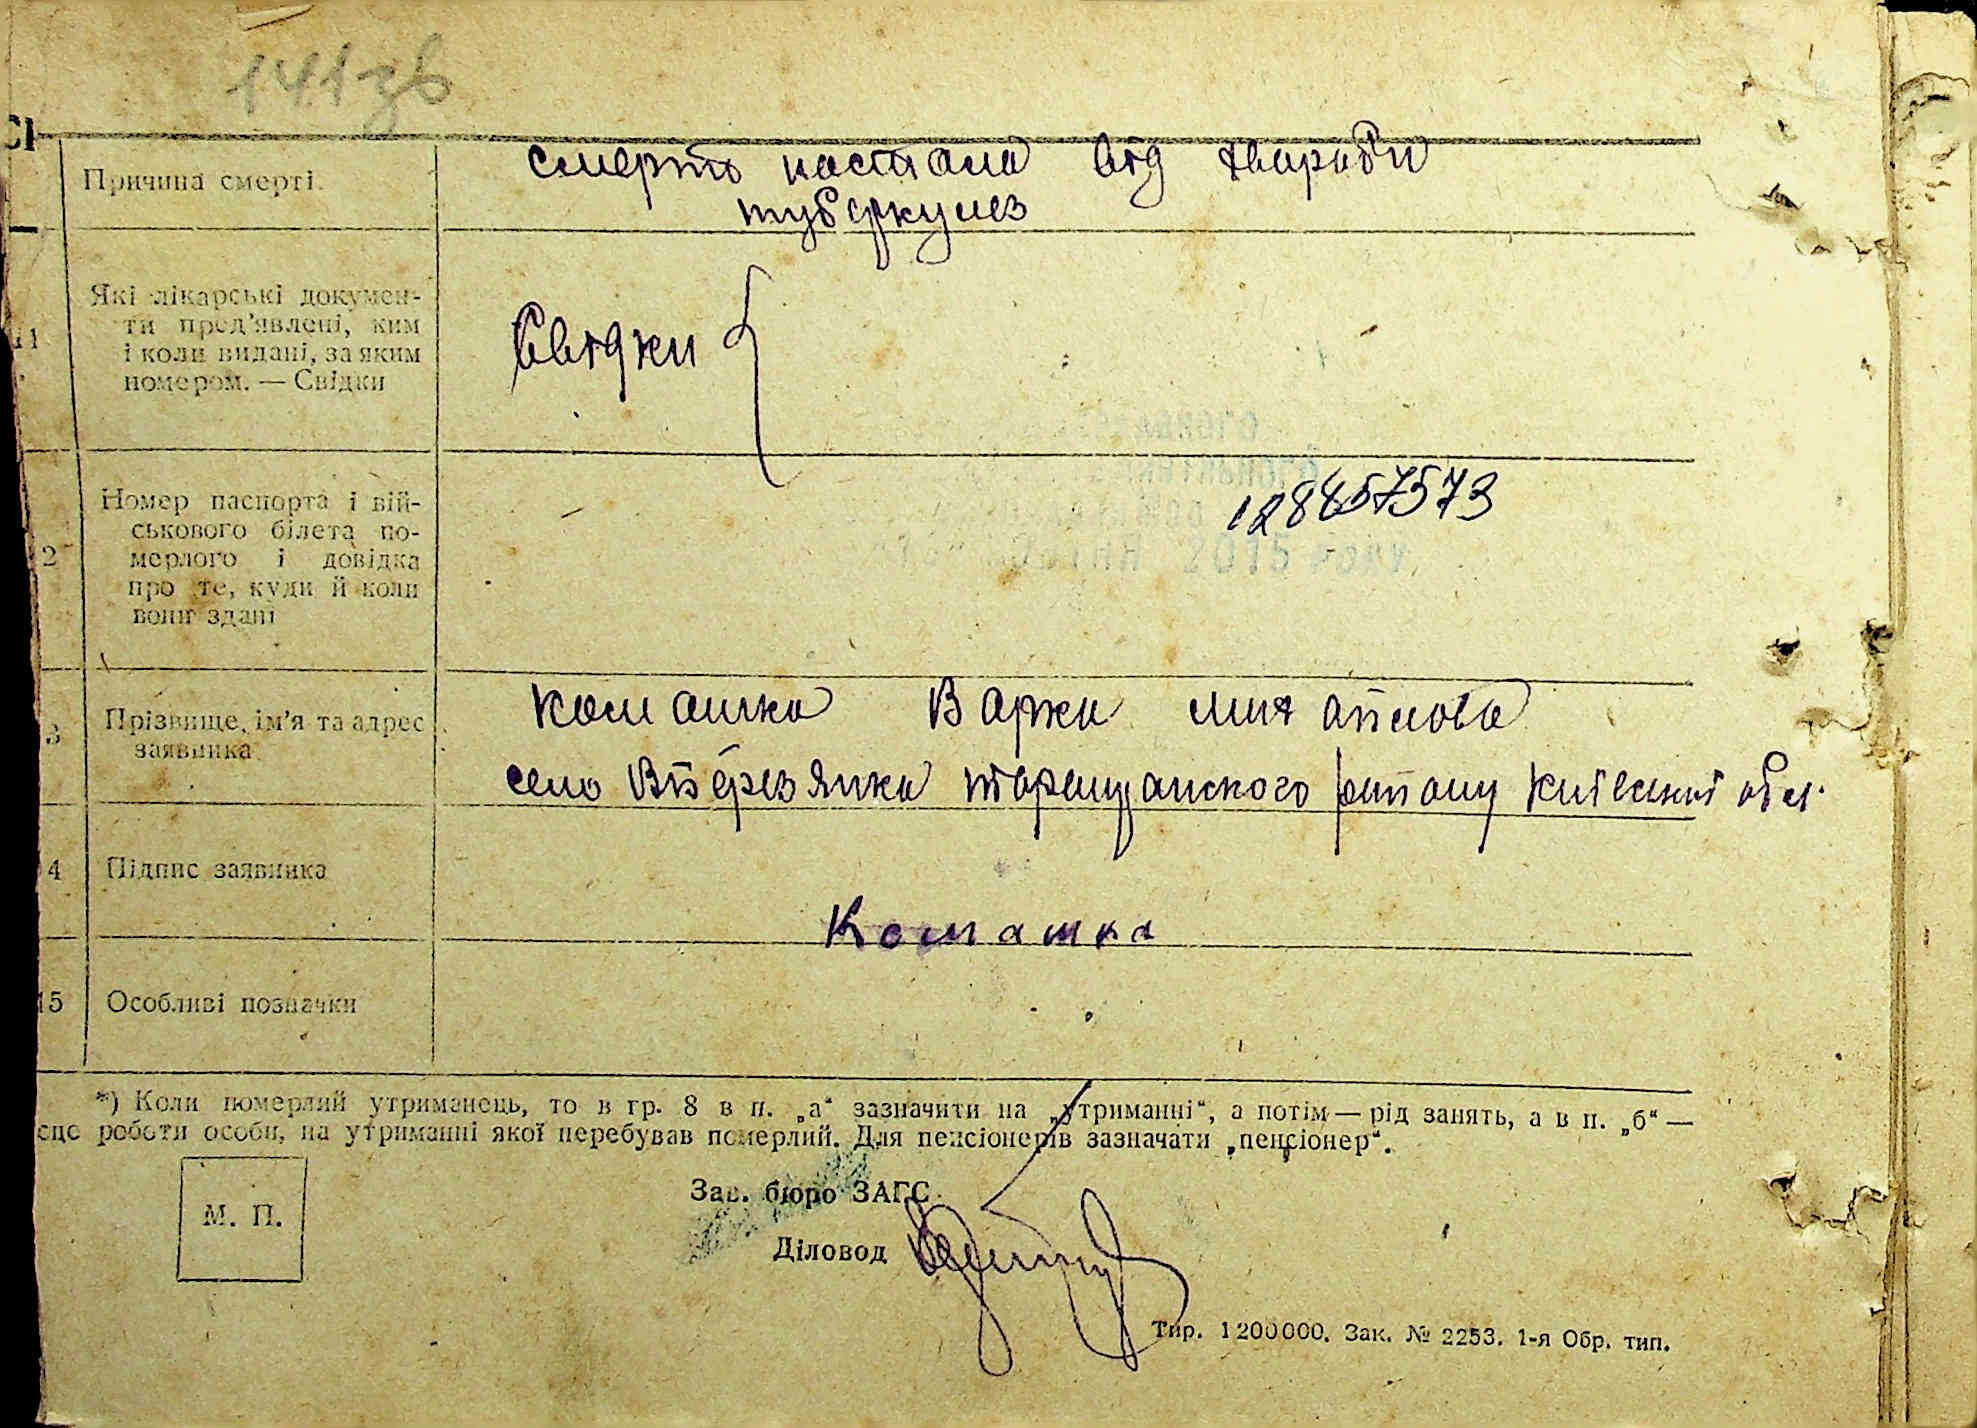 141зв
СІ
Причина смерті.
смерть настала від хвароби
туберкулез
11
Які лікарські докумен-
ти пред'явлені, ким
і коли видані, за яким
номером. — Свідки
Свідки {
2
Номер паспорта і вій-
ськового білета по-
мерлого і довідка
про те, куди й коли
вони здані
—
128457573
2015 року
3
Прізвище, ім'я та адрес
заявника
Комашка Варка
село Таращанского району Київській обл.
4
Підпис заявника
Комашка
15
Особливі позначки
*) Коли померлий утриманець, то в гр. 8 в п. „а“ зазначити на „утриманні“, а потім — рід занять, а в п. „б“ —
сце роботи особи, на утриманні якої перебував померлий. Для пенсіонерів зазначати „пенсіонер“.
М. П.
Зав. бюро ЗАГС
Діловод
Тир. 1200000. Зак. № 2253. 1-я Обр. тип.